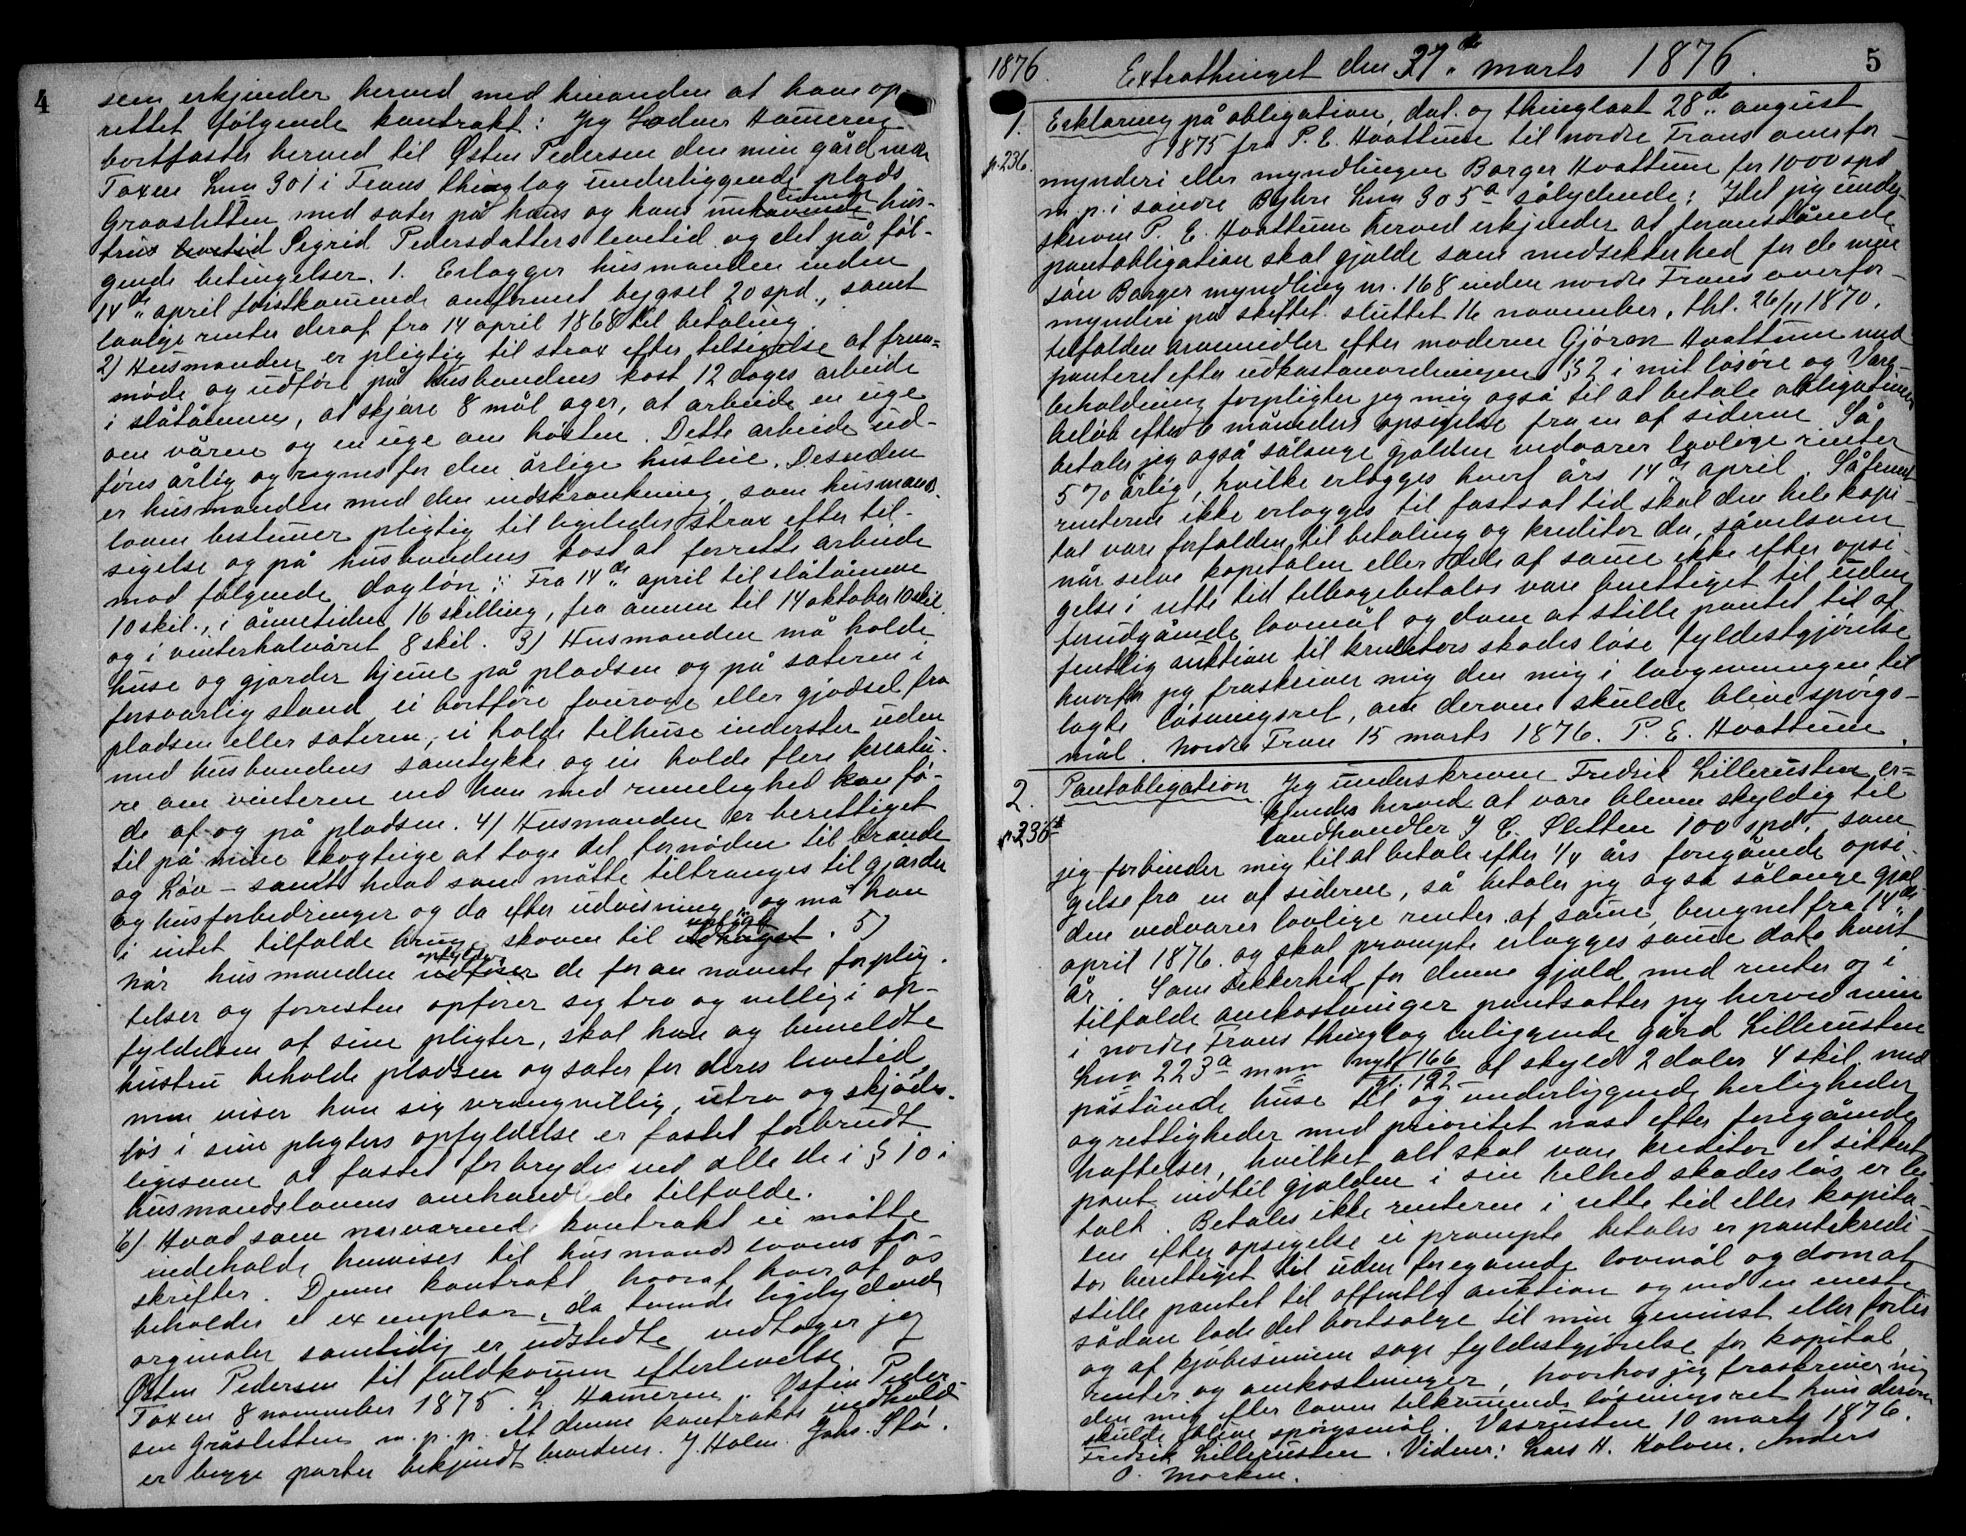 4
som erkjender herved med hinanden at have op-
rettet følgende kontrakt: Jeg Hameren
bortfæster herved til Østen Pedersen den min gård nedre
Toxen Lno 301 i Frons thinglag underliggende plads
Graasletten med sæter på hans og hans hus-
trues Sigrid Pedersdatters levetid og det på føl-
gende betingelser. 1. Erlægger husmanden inden
14de april førstkommende omforenet bygsel 20 spd., samt
lovlige renter deraf fra 14 april 1868 til betaling.
2) Husmanden er pligtig til strax efter tilsigelse at frem-
møde og udføre på husbondens kost 12 dages arbeide
i slåtånnen, at skjære 8 mål ager, at arbeide en uge
om våren og en uge om høsten. Dette arbeide ud-
føres årlig og regnes for den årlige husleie. Desuden
er husmanden med den indskrænkning, som husmands-
loven bestemer pligtig til ligeledes strax efter til-
sigelse og på husbondens kost at forrette arbeide
mod følgende dagløn: Fra 14de april til slåtånnen
10 skil., i ånnetiden 16 skilling, fra ånnen til 14 oktober 10 skil.
og i vinterhalvåret 8 skil. 3) Husmanden må holde
huse og gjærder hjeme på pladsen og på sæteren i
forsvarlig stand ei bortføre fourage eller gjødsel fra
pladsen eller sæteren, ei holde tilhuse inderster uden
med husbondens samtykke og ei holde flere kreatu-
re om vinteren end han med rimelighed kan fø-
de af og på pladsen. 4) Husmanden er berettiget
til på mine skogteige at tage det fornødne til brænde
og løv - samt hvad som måtte tiltrænges til gjærder
og husforbedringer og da efter udvisning og må han
i intet tilfælde bruge skoven til . 5)
Når husmanden opfylder udfører de foran nævnte forplig-
telser og forresten opfører sig tro og villig i op-
fyldelsen af sine pligter, skal han og bemeldte
hustru beholde pladsen og sæter for deres levetid,
men viser han sig vrangvillig, utro og skjødes-
løs i sine pligters opfyldelse er fæstet forbrudt
ligesom at fæstet forbrydes ved alle de i § 10 i
husmandslovens omhandlede tilfælde.
6) Hvad som nærværende kontrakt ei måtte
indeholde henvises til husmandslovens for-
skrifter. Denne kontrakt, hvoraf hver af os
beholder et exemplar, da tvende ligelydende
orginaler samtidig er udstedte vedtager jeg
Østen Pedersen til fuldkommen efterlevelse.
Toxen 8 november 1875. L. Hameren. Østen Peder-
sen Gråsletten m. p. p. At denne kontrakts indhold
er begge parter bekjendt bevidnes. J. Holm. Johs. Stå.
1876. Extrathinget den 27de marts 1876. 5
1. Erklæring på obligation, dat. og thinglæst 28de august
p. 236. 1875 fra P. E. Hvattum til nordre Frons overfor-
mynderi eller myndlingen Borger Hvattum for 1000 spd
m. p. i søndre Byhre Lno 305a sålydende: Idet jeg under-
skreven P. E. Hvattum herved erkjender at foranstående
pantobligation skal gjælde som medsikkerhed for de min
søn Borger myndling nr. 168 inden nordre Frons overfor-
mynderi på skiftet sluttet 16 november, thl. 26/11 1870,
tilfaldne arvemidler efter moderen Gjøran Hvattum med
panteret efter udkastanordningen § 2 i mit løsøre og Vare-
beholdning forpligter jeg mig også til at betale obligationens
beløb efter 6 måneders opsigelse fra en af siderne. Så
betaler jeg også sålænge gjælden vedvarer lovlige renter
5 % årlig, hvilke erlægges hvert års 14de april. Såfremt
renterne ikke erlægges til fastsat tid skal den hele kapi-
tal være forfalden til betaling og kreditor da, såvelsom
når selve kapitalen eller del af same ikke efter opsi-
gelse i rette tid tilbagebetales være berettiget til uden
forudgående lovmål og dom at stille pantet til of-
fentlig auktion til kreditors skadesløse fyldestgjørelse
hvorfor jeg fraskriver mig den mig i lovgivningen til-
lagte løsningsret, om derom skulde blive spørgs-
mål. Nordre Fron 15 marts 1876. P. E. Hvattum.
2. Pantobligation. Jeg underskreven Fredrik Lillerusten er-
p. 236b kjender herved at være bleven skyldig til
landhandler J C. Sletten 100 spd, som
jeg forbinder mig til at betale efter 1/4 års foregående opsi-
gelse fra en af siderne, så betaler jeg også sålænge gjæl-
den vedvarer lovlige renter af same, beregnet fra 14de
april 1876. og skal prompte erlægges same dato hvert
år. Som sikkerhed for denne gjæld med renter og i
tilfælde omkostninger pantsætter jeg herved min
i nordre Frons thinglag beliggende gård Lillerusten
Lno 223a mno nyt 166 / gl. 122 af skyld 2 daler 4 skil med
påstående huse til og underliggende herligheder
og rettigheder med prioritet næst efter foregående
hæftelser, hvilket alt skal være kreditor et sikkert
pant indtil gjælden i sin helhed skadesløs er be-
talt. Betales ikke renterne i rette tid eller kapita-
len efter opsigelse ei prompte betales er pantekredi-
tor berettiget til uden foregående lovmål og dom at
stille pantet til offentlig auktion og ved en eneste
sådan lade det bortsælge til min gevinst eller forlis
og af kjøbesummen søge fyldestgjørelse for kapital,
renter og omkostninger, hvorhos jeg fraskriver mig
den mig efter loven tilkommende løsningsret hvis derom
skulde blive spørgsmål. Vasrusten 10 marts 1876.
Fredrik Lillerusten. Vidner: Lars H. Kolven. Anders
O. Morken.